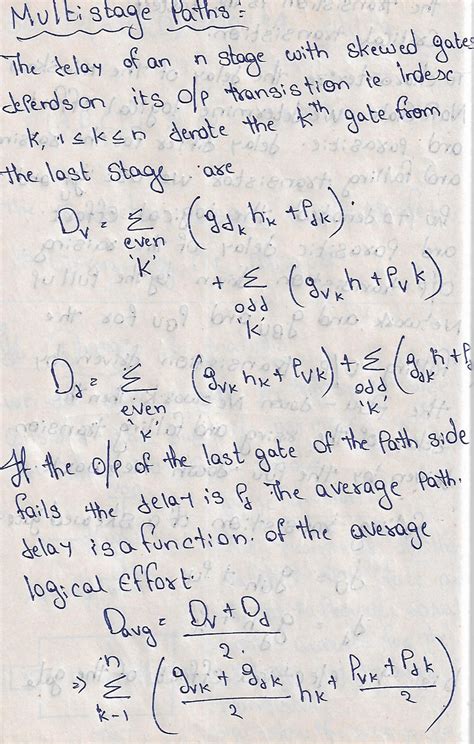 Multistage Paths:
The delay of an n stage with skewed gates
depends on its O/p transistion ie index
k, 1 ≤ k ≤ n denote the kth gate from
the last stage are
Dv = Σ even 'k' (gdk hk + Pdk)
+ Σ odd 'k' (gvk h + Pv k)
Dd = Σ even 'k' (gvk hk + Pvk) + Σ odd 'k' (gdk h + P
If the O/p of the last gate of the Path side
fails the delay is Pd The average Path.
delay is a function. of the average
logical Effort.
Davg = Dv + Dd / 2.
⇒ Σ n k-1 (gvk + gdk / 2 hk + Pvk + Pdk / 2)